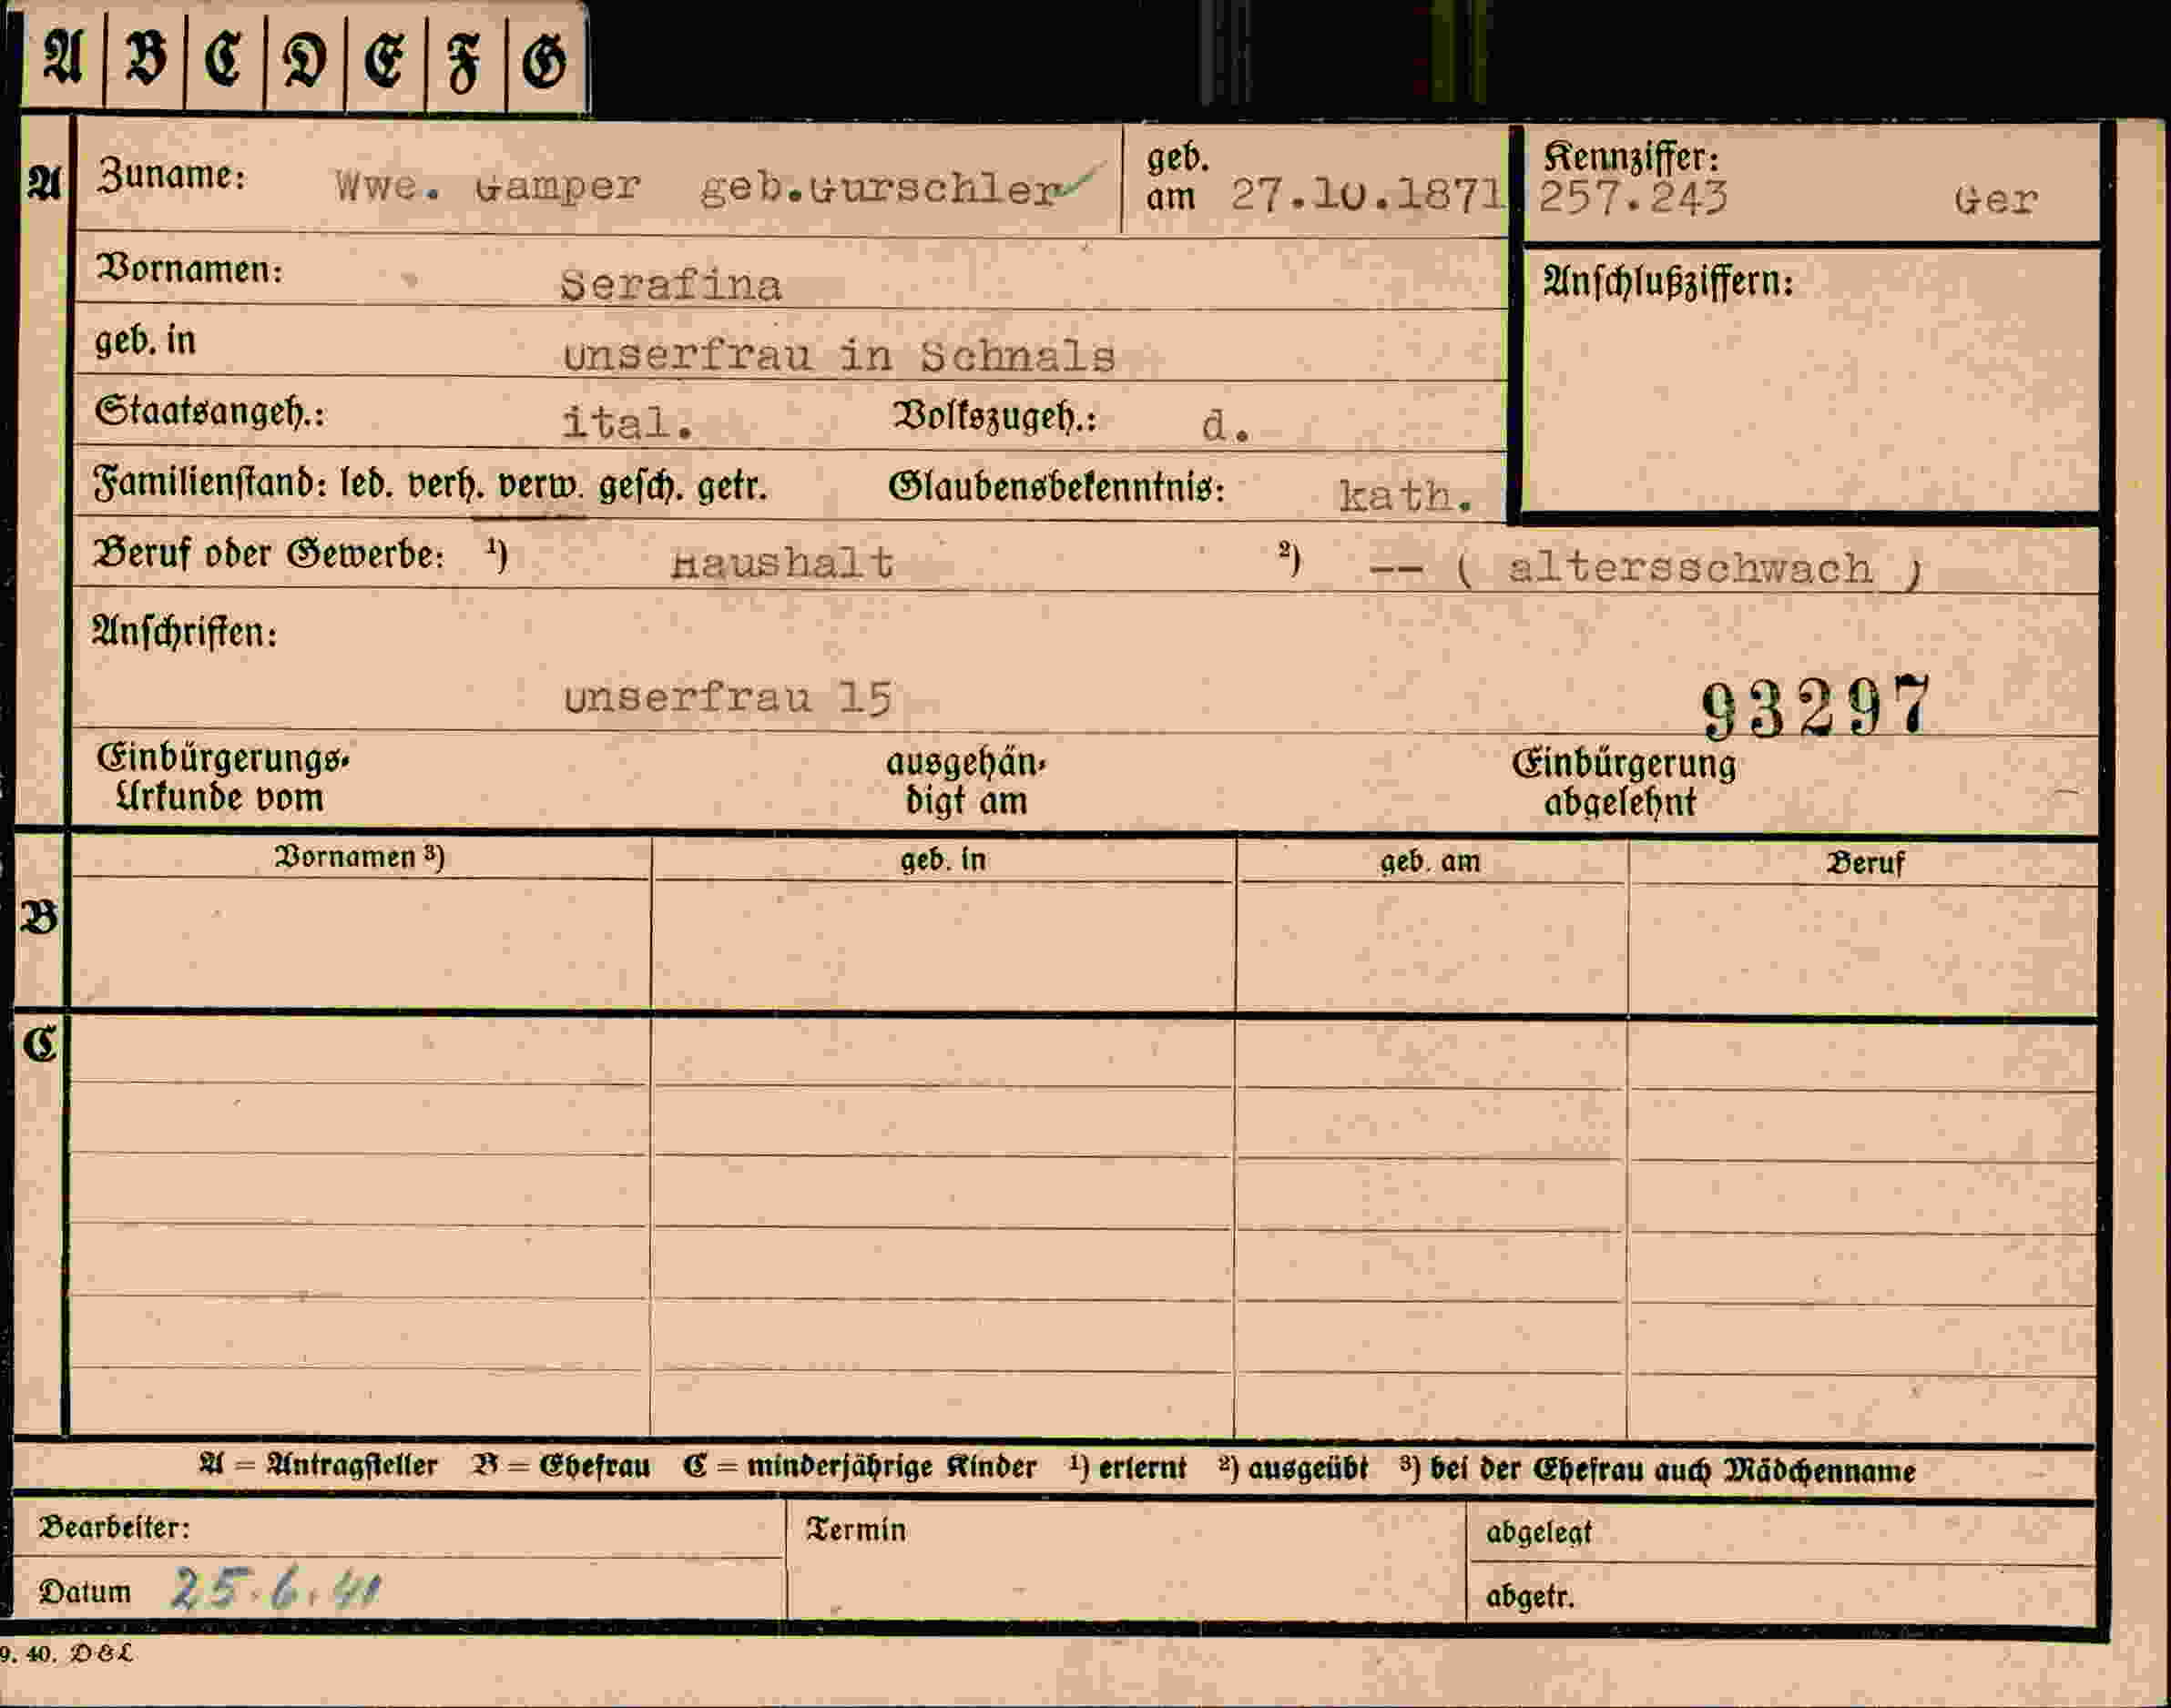 A B C D E F G
A Zuname: Wwe. Gamper geb.Gurschler geb. am 27.10.1871 Kennziffer: 257.243 Ger
Vornamen: Serafina Anschlußziffern:
geb. in Unserfrau in Schnals
Staatsangeh.: ital. Volkszugeh.: d.
Familienstand: led. verh. verw. gesch. getr. Glaubensbekenntnis: kath.
Beruf oder Gewerbe: ¹) Haushalt ²) -- ( altersschwach )
Anschriften:
Unserfrau 15 93297
Einbürgerungs- ausgehän- Einbürgerung
Urkunde vom digt am abgelehnt
Vornamen ³) geb. in geb. am Beruf
B
C
A = Antragsteller B = Ehefrau C = minderjährige Kinder ¹) erlernt ²) ausgeübt ³) bei der Ehefrau auch Mädchenname
Bearbeiter: Termin abgelegt
Datum 25.6.41 abgetr.
9. 40. D&L